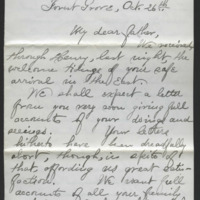 Forest Grove, Oct. 26th
My dear father,
We received
through Henry, last night, the
welcome tidings of your safe
arrival in the East.
We shall expect a letter
from you very soon giving full
accounts of your doings and
seeings. Your letters
hitherto have been dreadfully
short, though, in spite of
that affording us great satis-
faction. We want full
accounts of all your family